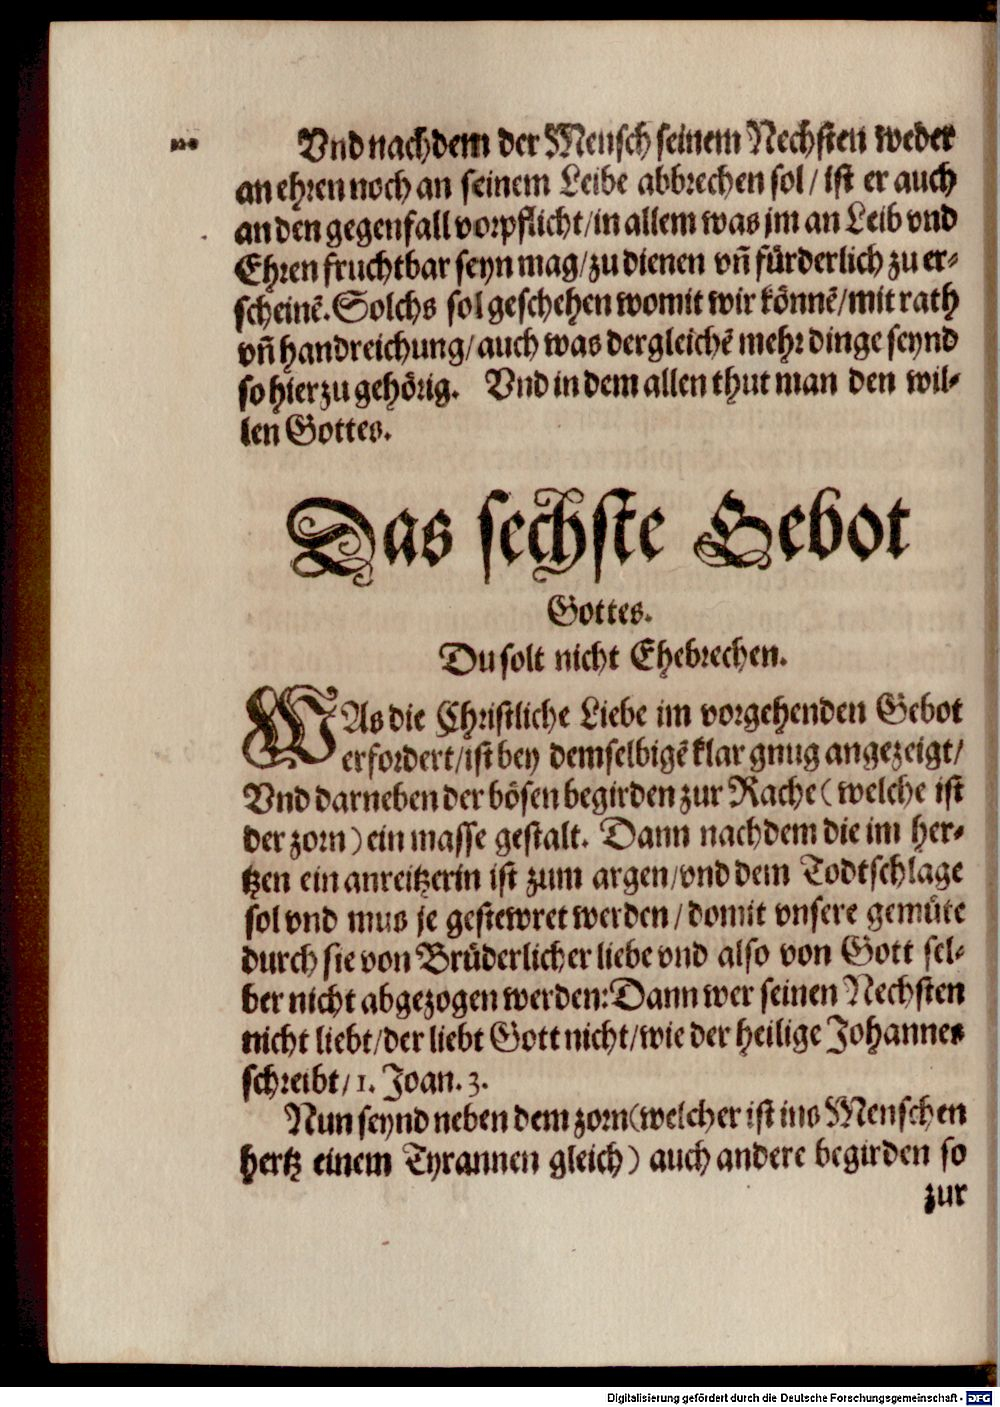 Vnd nachdem der Mensch seinem Nechsten weder
an ehren noch an seinem Leibe abbrechen sol/ ist er auch
an den gegenfall vorpflicht/in allem was jm an Leib vnd
Ehren fruchtbar seyn mag/zu dienen vñ fürderlich zu er-
scheinẽ. Solchs sol geschehen womit wir könnẽ/mit rath
vñ handreichung/auch was dergleichẽ mehr dinge seynd
so hierzu gehörig. Vnd in dem allen thut man den wil-
len Gottes.
Das sechste Gebot
Gottes.
Du solt nicht Ehebrechen.
WAs die Christliche Liebe im vorgehenden Gebot
erfordert/ist bey demselbigẽ klar gnug angezeigt/
Vnd darneben der bösen begirden zur Rache (welche ist
der zorn) ein masse gestalt. Dann nachdem die im her-
tzen ein anreitzerin ist zum argen/vnd dem Todtschlage
sol vnd mus je gestewret werden/domit vnsere gemüte
durch sie von Brüderlicher liebe vnd also von Gott sel-
ber nicht abgezogen werden: Dann wer seinen Nechsten
nicht liebt/der liebt Gott nicht/wie der heilige Johannes
schreibt/1. Joan. 3.
Nun seynd neben dem zorn (welcher ist ins Menschen
hertz einem Tyrannen gleich) auch andere begirden so
zur
Digitalisierung gefördert durch die Deutsche Forschungsgemeinschaft - DFG